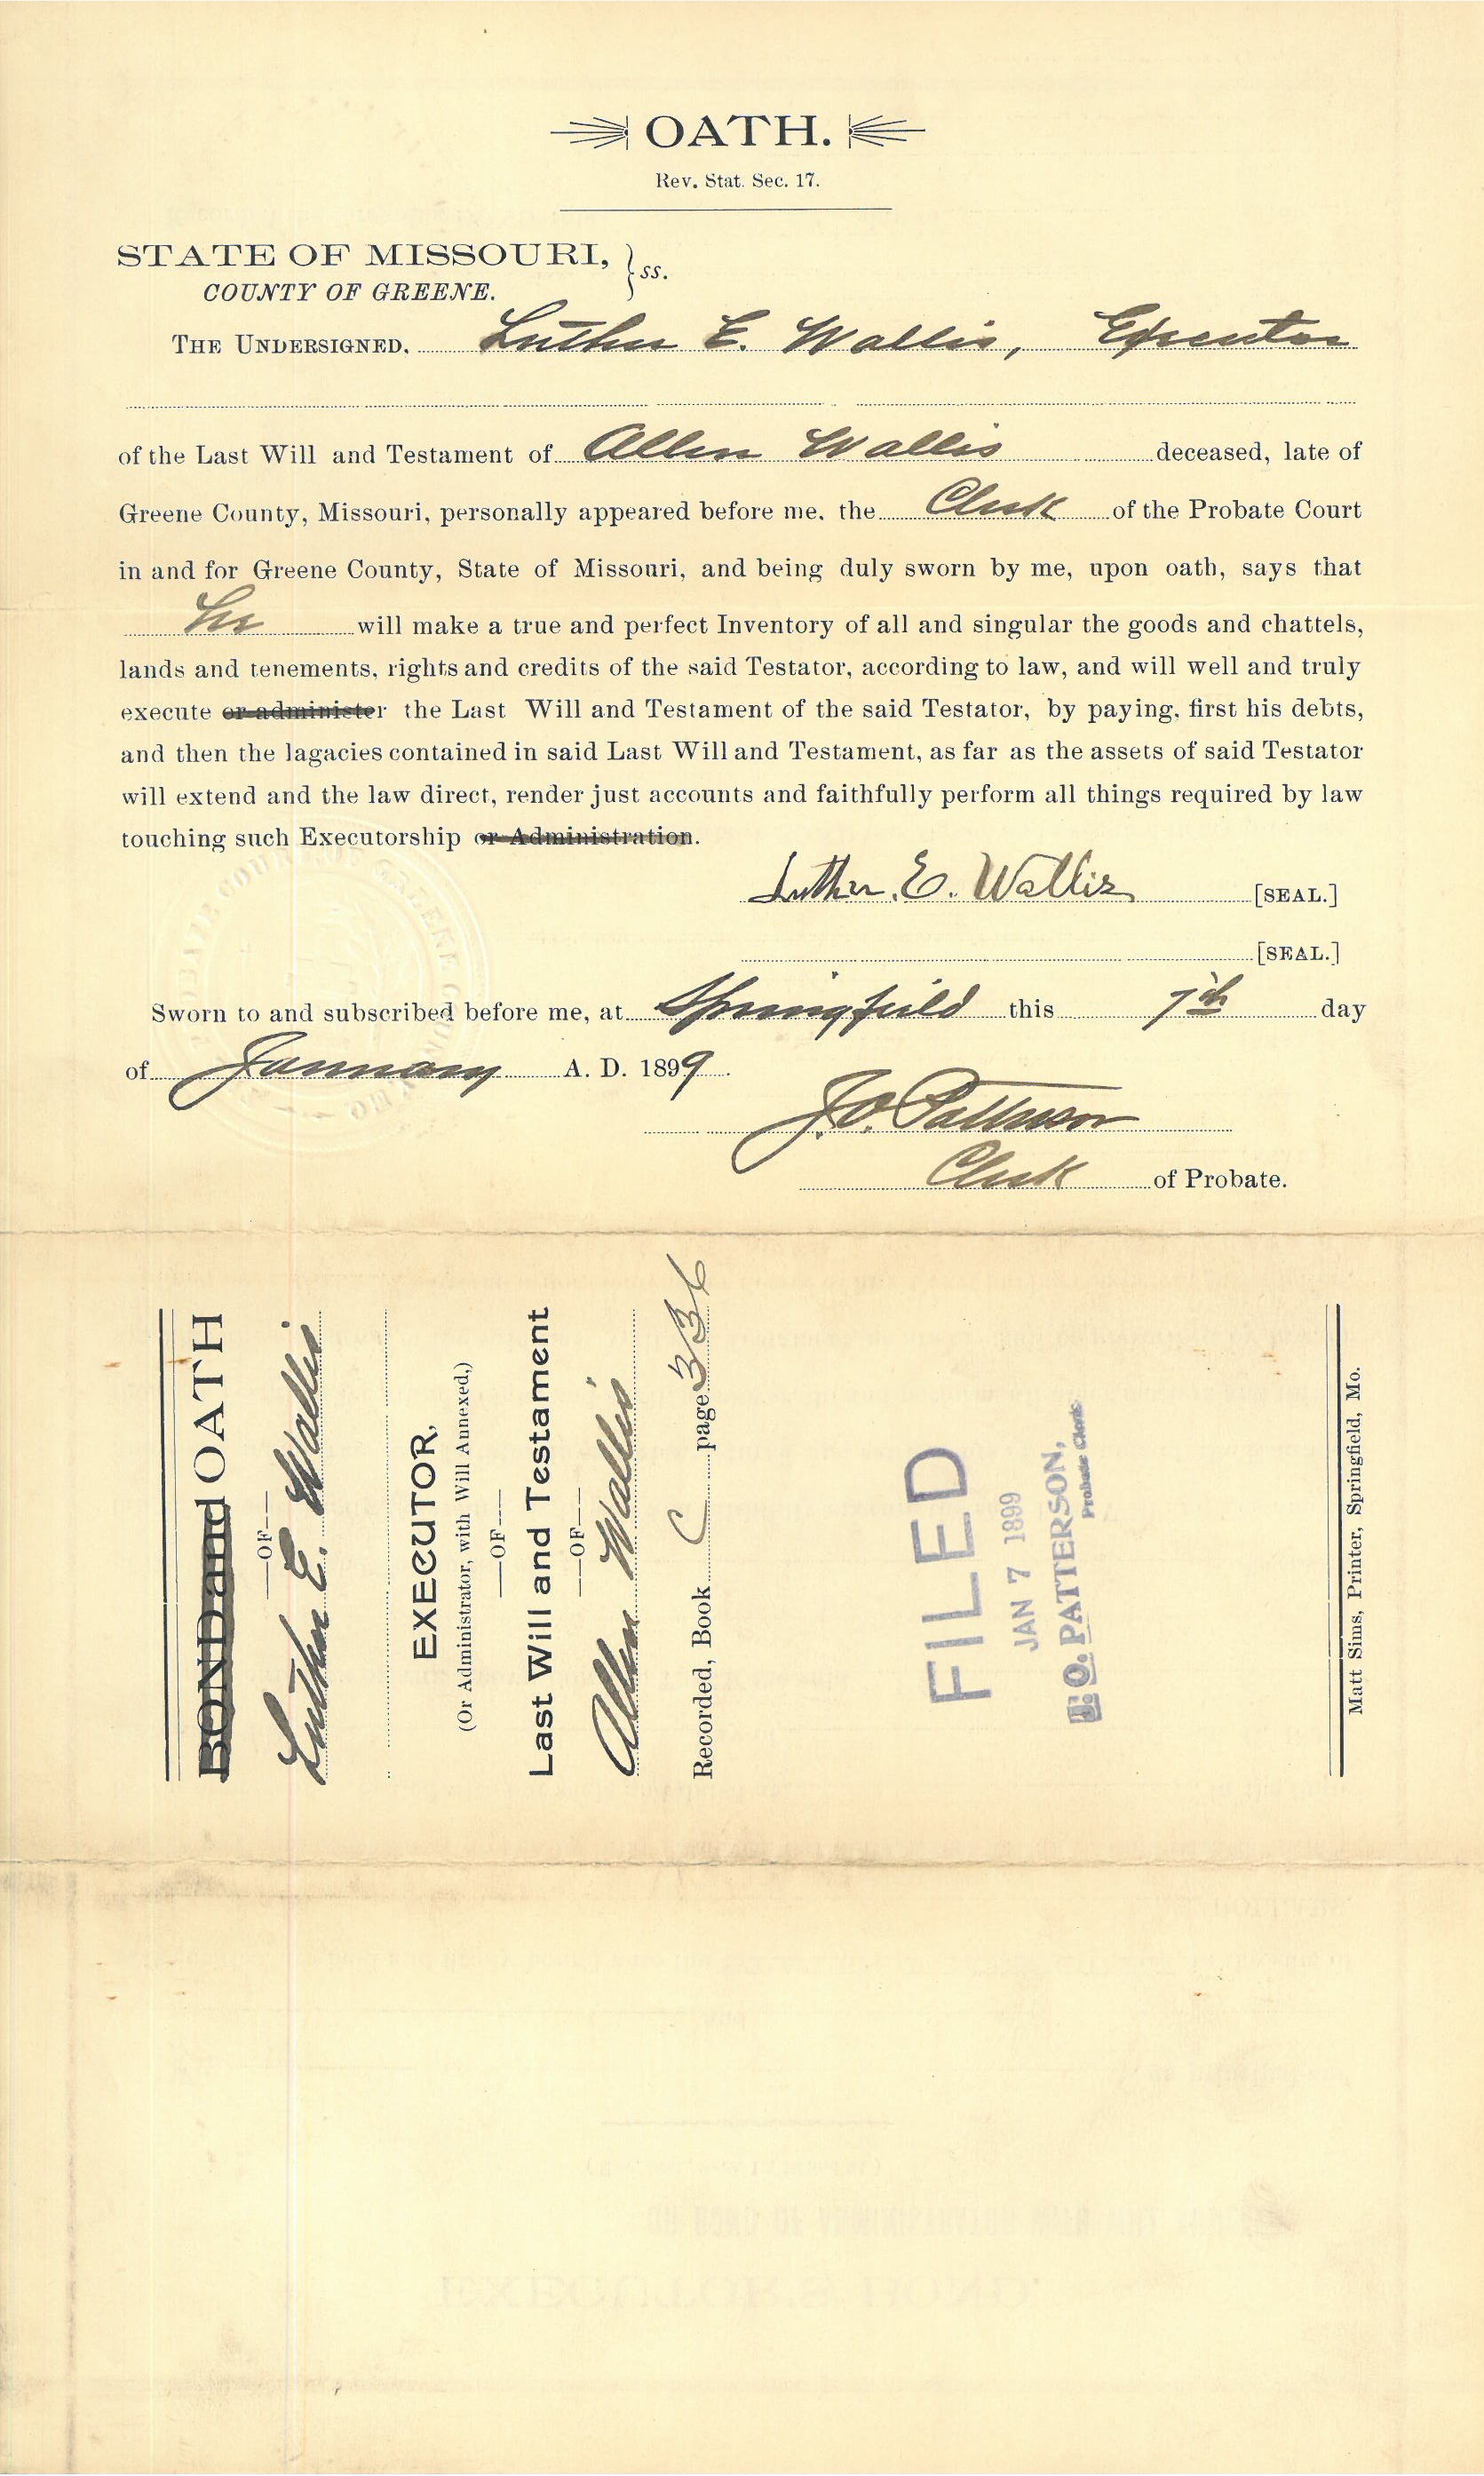 OATH.
Rev. Stat. Sec. 17.
STATE OF MISSOURI, } ss.
COUNTY OF GREENE.
THE UNDERSIGNED, Luther E. Wallis, Executor
of the Last Will and Testament of Allen Wallis deceased, late of
Greene County, Missouri, personally appeared before me, the Clerk of the Probate Court
in and for Greene County, State of Missouri, and being duly sworn by me, upon oath, says that
he will make a true and perfect Inventory of all and singular the goods and chattels,
lands and tenements, rights and credits of the said Testator, according to law, and will well and truly
execute or administer the Last Will and Testament of the said Testator, by paying, first his debts,
and then the lagacies contained in said Last Will and Testament, as far as the assets of said Testator
will extend and the law direct, render just accounts and faithfully perform all things required by law
touching such Executorship or Administration.
Luther. E. Wallis [SEAL.]
[SEAL.]
Sworn to and subscribed before me, at Springfield this 7th day
of January A. D. 1899.
J.O. Patterson
Clerk of Probate.
BOND and OATH
—OF—
Luther E. Wallis
EXECUTOR,
(Or Administrator, with Will Annexed,)
—OF—
Last Will and Testament
—OF—
Allen Wallis
Recorded, Book C page 336
FILED
JAN 7 1899
J. O. PATTERSON,
Probate Clerk.
Matt Sims, Printer, Springfield, Mo.
EXECUTOR'S BOND.